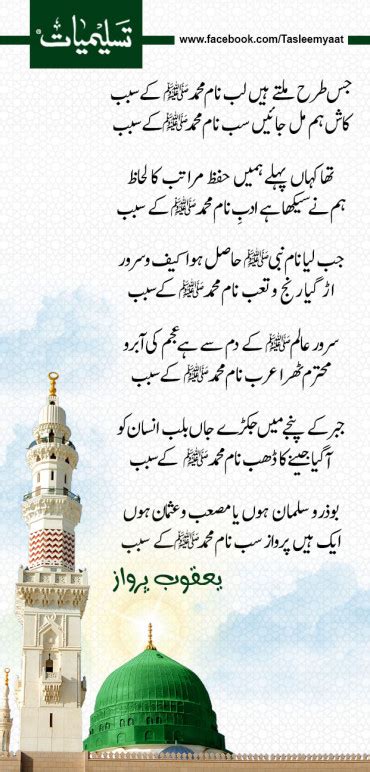 تسلیمیات
www.facebook.com/Tasleemyaat
جس طرح ملتے ہیں لب نام محمد ﷺ کے سبب
کاش ہم مل جائیں سب نام محمد ﷺ کے سبب
تھا کہاں پہلے ہمیں حفظ مراتب کا لحاظ
ہم نے سیکھا ہے ادب نام محمد ﷺ کے سبب
جب لیا نام نبی ﷺ حاصل ہوا کیف و سرور
اڑ گیا رنج و تعب نام محمد ﷺ کے سبب
سرور عالم ﷺ کے دم سے ہے عجم کی آبرو
محترم ٹھرا عرب نام محمد ﷺ کے سبب
جبر کے پنجے میں جکڑے جاں بلب انسان کو
آ گیا جینے کا ڈھب نام محمد ﷺ کے سبب
بوذر و سلمان ہوں یا مصعب و عثمان ہوں
ایک ہیں پرواز سب نام محمد ﷺ کے سبب
یعقوب پرواز